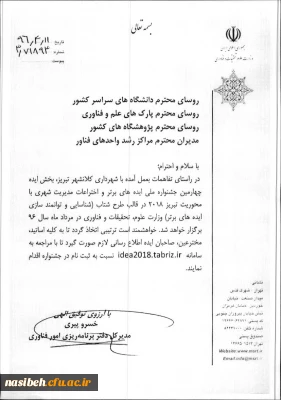 بسمه تعالی
تاریخ ۹۶,۴,۱۱
شماره ۳/۷۱۸۹۳
پیوست
جمهوری اسلامی ایران
وزارت علوم، تحقیقات و فناوری
روسای محترم دانشگاه های سراسر کشور
روسای محترم پارک های علم و فناوری
روسای محترم پژوهشگاه های کشور
مدیران محترم مراکز رشد واحدهای فناور
با سلام و احترام؛
در راستای تفاهمات بعمل آمده با شهرداری کلانشهر تبریز، بخش ایده
چهارمین جشنواره ملی ایده های برتر و اختراعات مدیریت شهری با
محوریت تبریز ۲۰۱۸ در قالب طرح شتاب (شناسایی و توانمند سازی
ایده های برتر) وزارت علوم، تحقیقات و فناوری در مرداد ماه سال ۹۶
برگزار خواهد شد. خواهشمند است ترتیبی اتخاذ گردد تا به کلیه اساتید،
مخترعین، صاحبان ایده اطلاع رسانی لازم صورت گیرد تا با مراجعه به
سامانه idea2018.tabriz.ir نسبت به ثبت نام در جشنواره اقدام
نمایند.
با آرزوی توفیق الهی
خسرو پیری
مدیرکل دفتر برنامه‌ریزی امور فناوری
نشانی
تهران - شهرک قدس
صندوق پستی
nasibeh.cfu.ac.ir